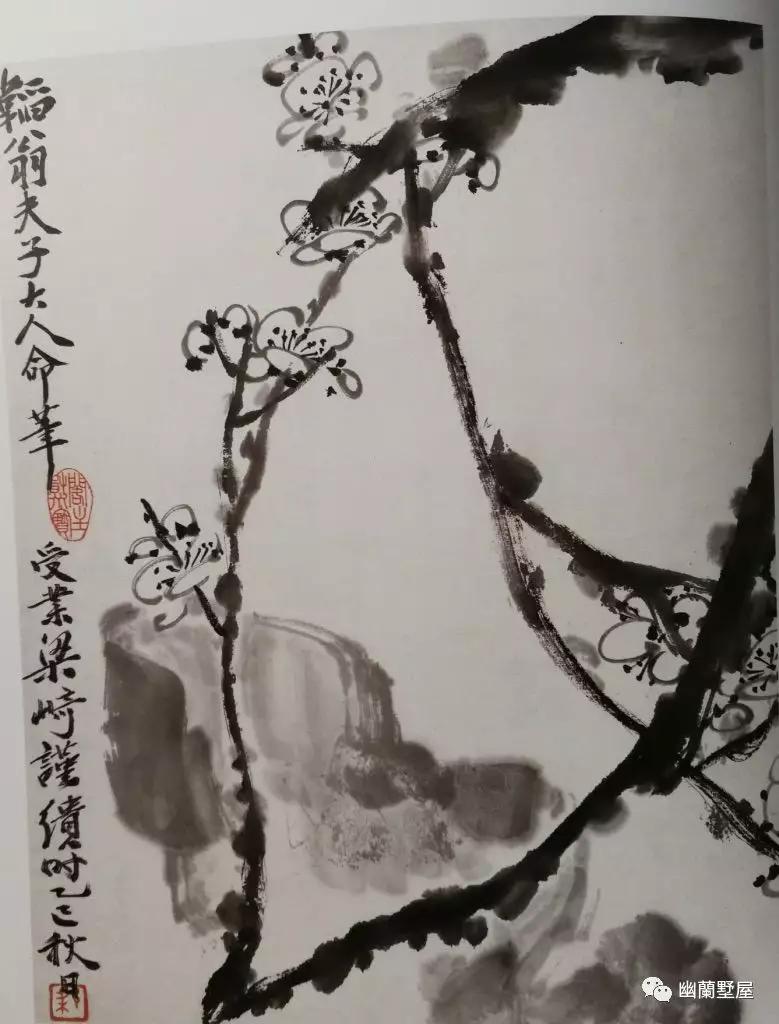 韜翁夫子大人命筆
受業梁崎謹繢时乙巳秋月
幽蘭墅屋